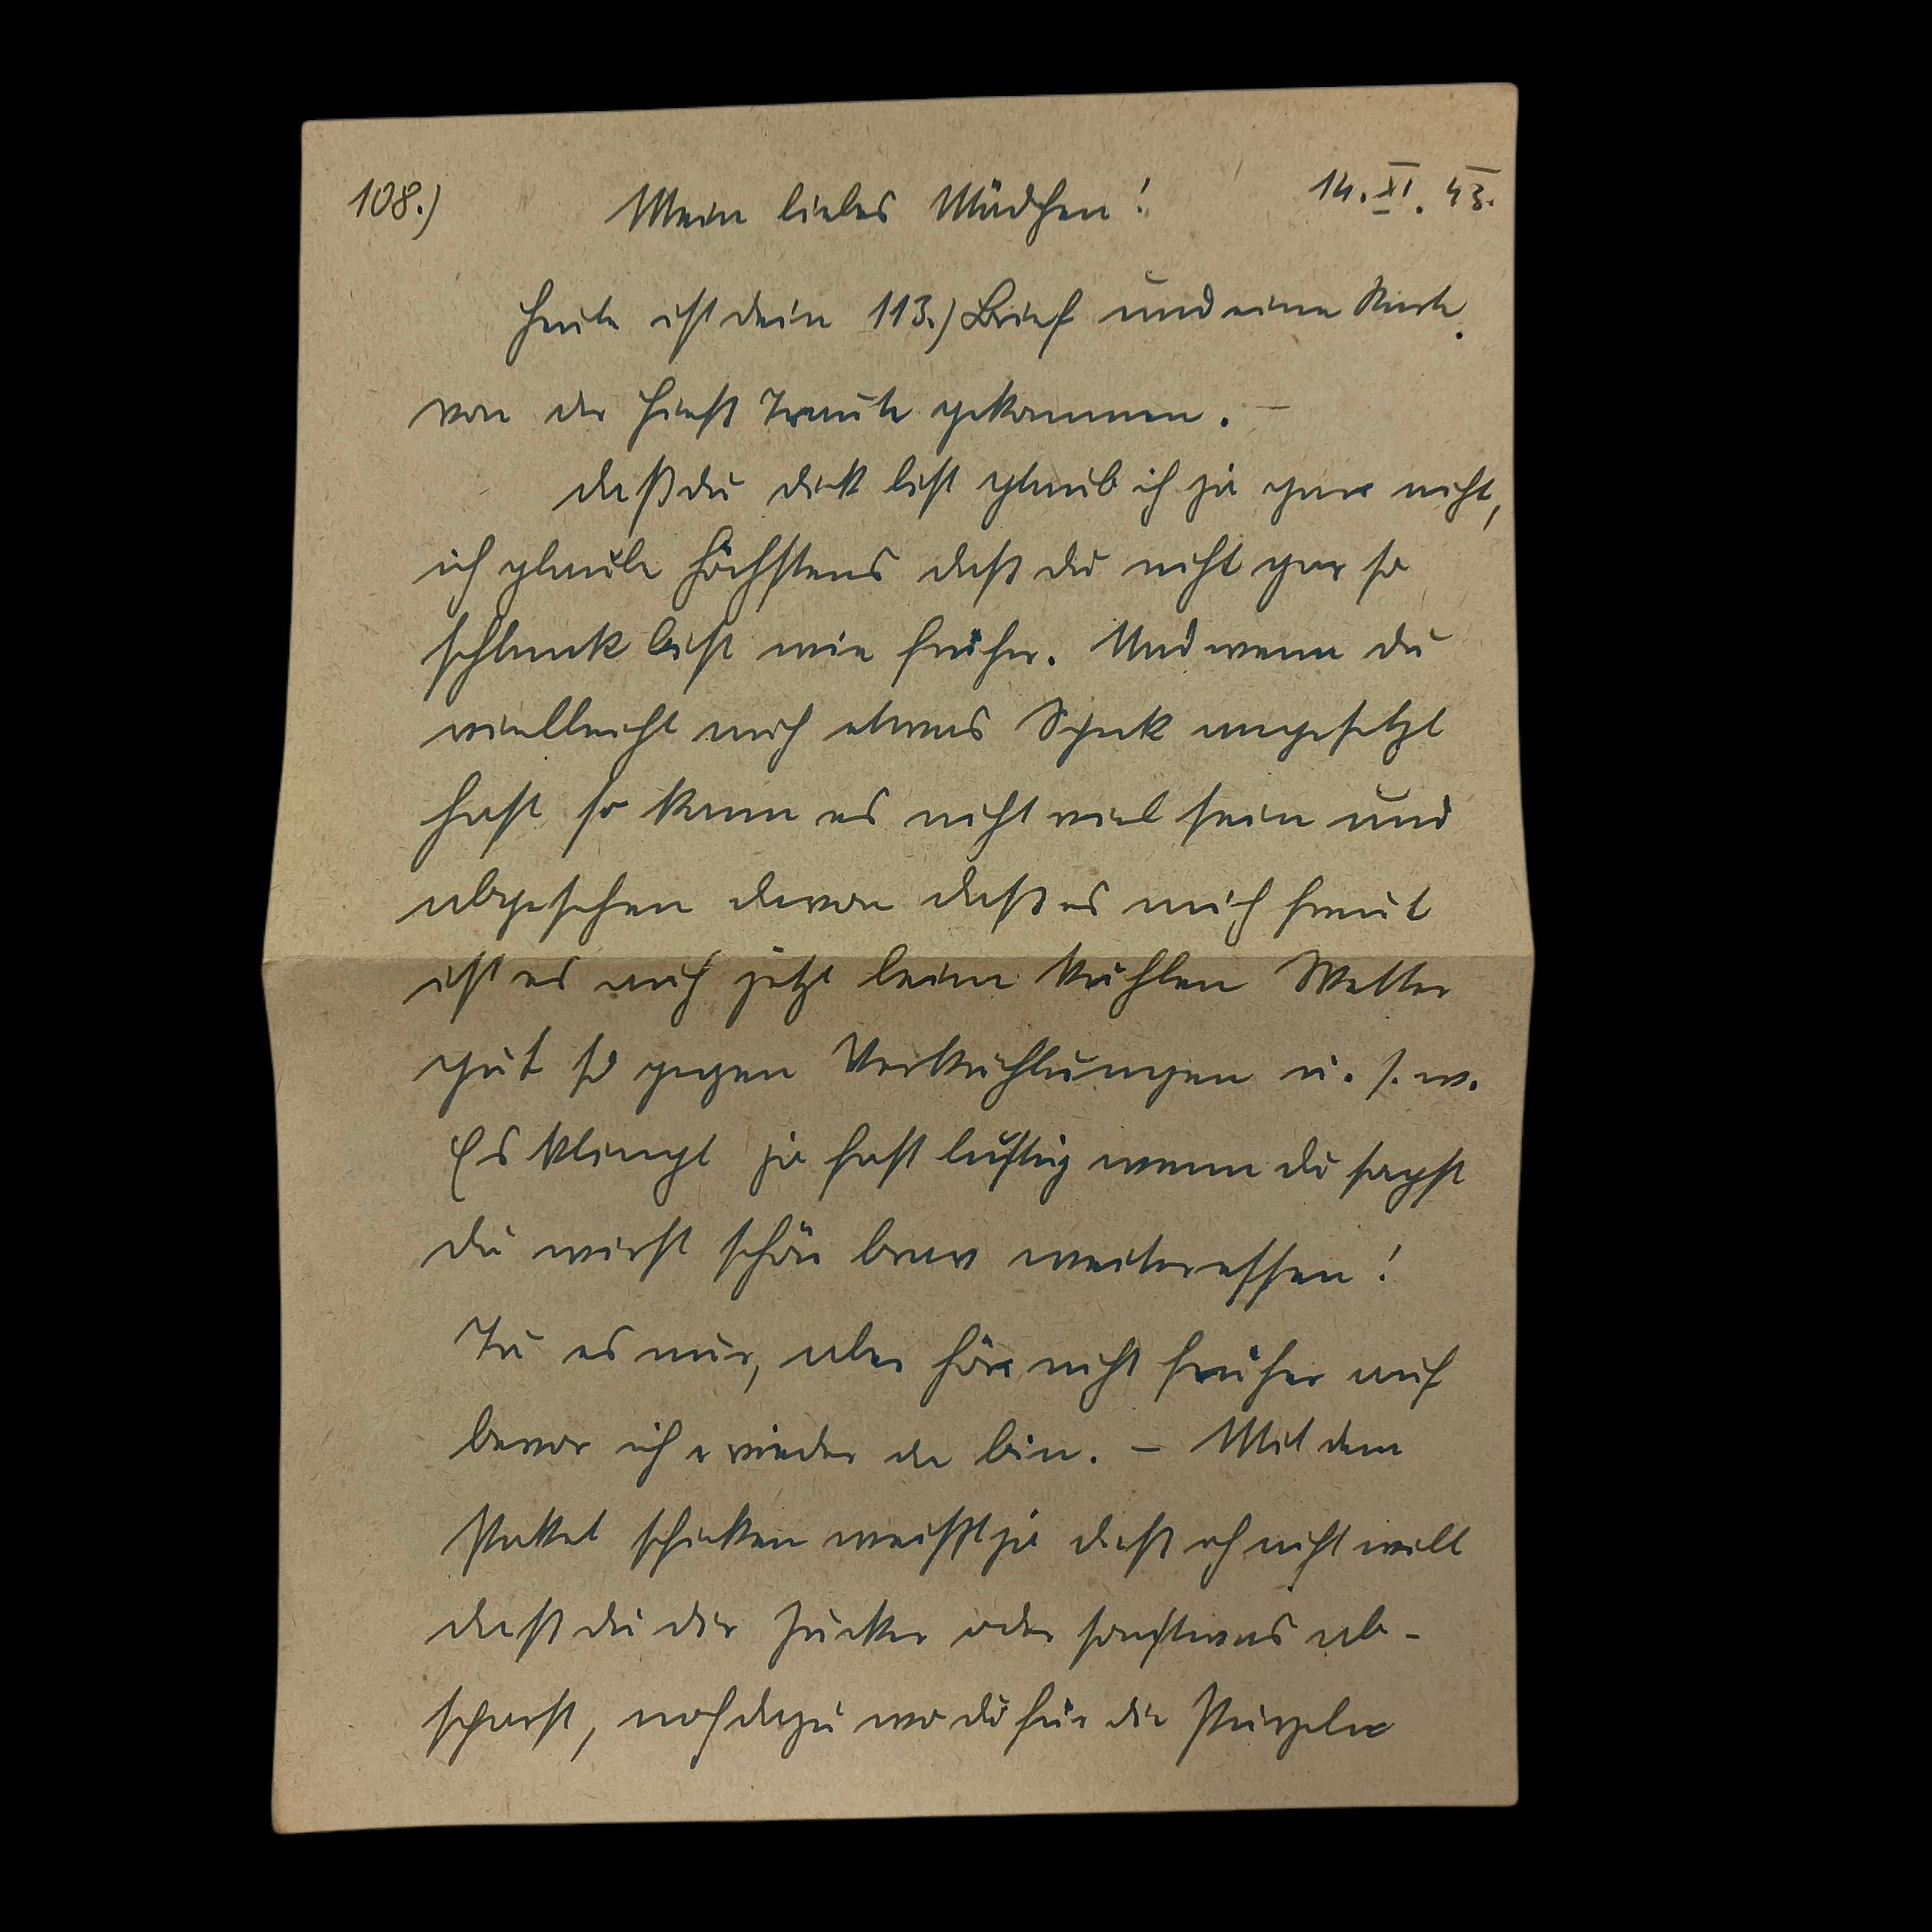 108.) Mein liebes Mädchen! 14. XI. 43.
Heute ist dein 113.) Brief und eine Karte
von der Traute gekommen. –
daß du dick bist glaub ich ja gar nicht,
ich glaube höchstens daß du nicht gar so
schlank bist wie früher. Und wenn du
vielleicht auch etwas Speck angesetzt
hast so kann es nicht viel sein und
abgesehen davon daß es mich freut
ist es auch jetzt beim kühlen Wetter
gut so gegen Verkühlungen u. s. w.
Es klingt ja fast lustig wenn du sagst
du wirst schön brav weiteressen!
Tu es nur, aber höre nicht früher auf
bevor ich wieder da bin. – Mit dem
Paket schicken weißt ja daß ich nicht will
daß du dir Zucker oder sonstwas ab-
sparst, noch dazu wo du für die